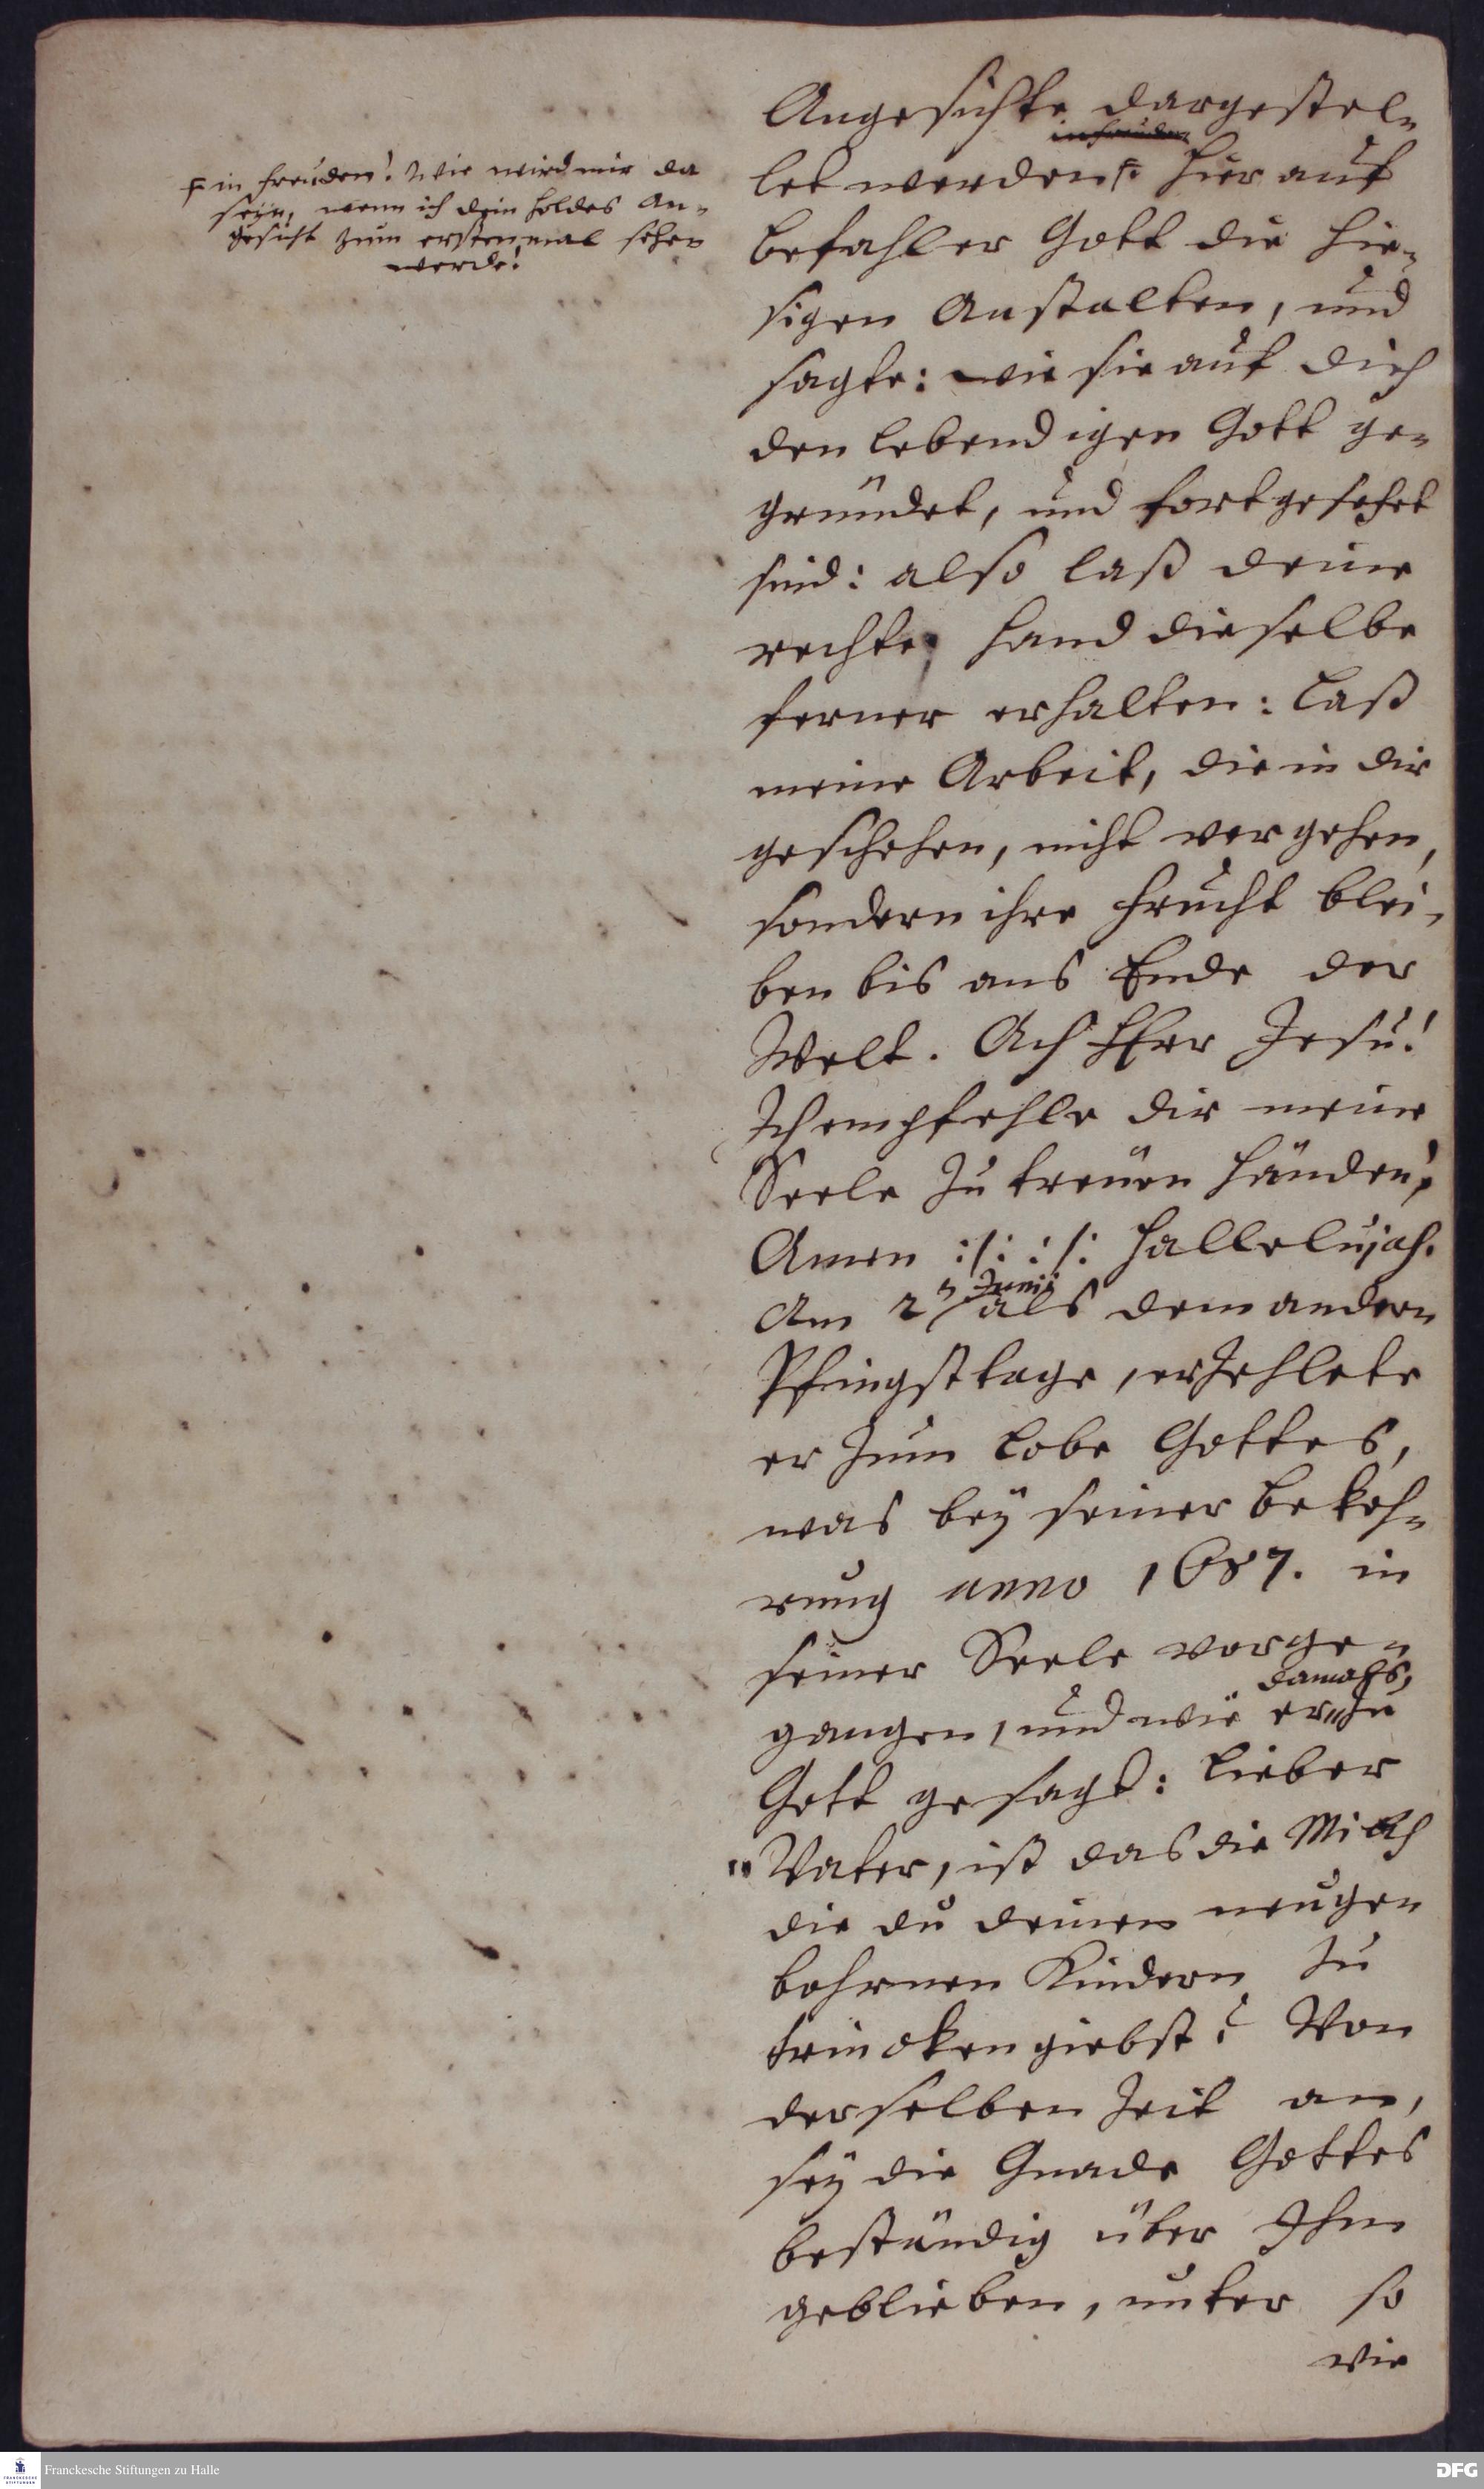 Angesichte dargestel-
in freuden
let werden F Hierauf
befahl er Gott die hie-
sigen Anstalten, und
sagte: wie sie auf dich
den lebendigen Gott ge-
gründet, und fortgesetzet
sind: also laß deine
rechte Hand dieselbe
ferner erhalten: Laß
meine Arbeit, die in dir
geschehen, nicht vergehen,
sondern ihre Frucht blei-
ben bis ans Ende der
Welt. Ach HErr Jesu!
Ich empfehle dir meine
Seele zu treuen Händen!
Amen :/: :/: Hallelujah.
Junii
Am 2 als dem andern
Pfingsttage, erzehlete
er zum Lobe Gottes,
was bey seiner Bekeh-
rung anno 1687. in
seiner Seele vorge-
damahls,
gangen, und wie er zu
Gott gesagt: Lieber
"Vater, ist das die Milch
die du deinen neuge-
bohrnen Kindern zu
trincken giebst? Von
derselben Zeit an,
sey die Gnade Gottes
beständig über Ihm
geblieben, unter so
wie
F in Freuden! Wie wird mir da
seyn, wenn ich dein holdes An-
gesicht zum erstenmal sehen
werde!
Franckesche Stiftungen zu Halle
DFG